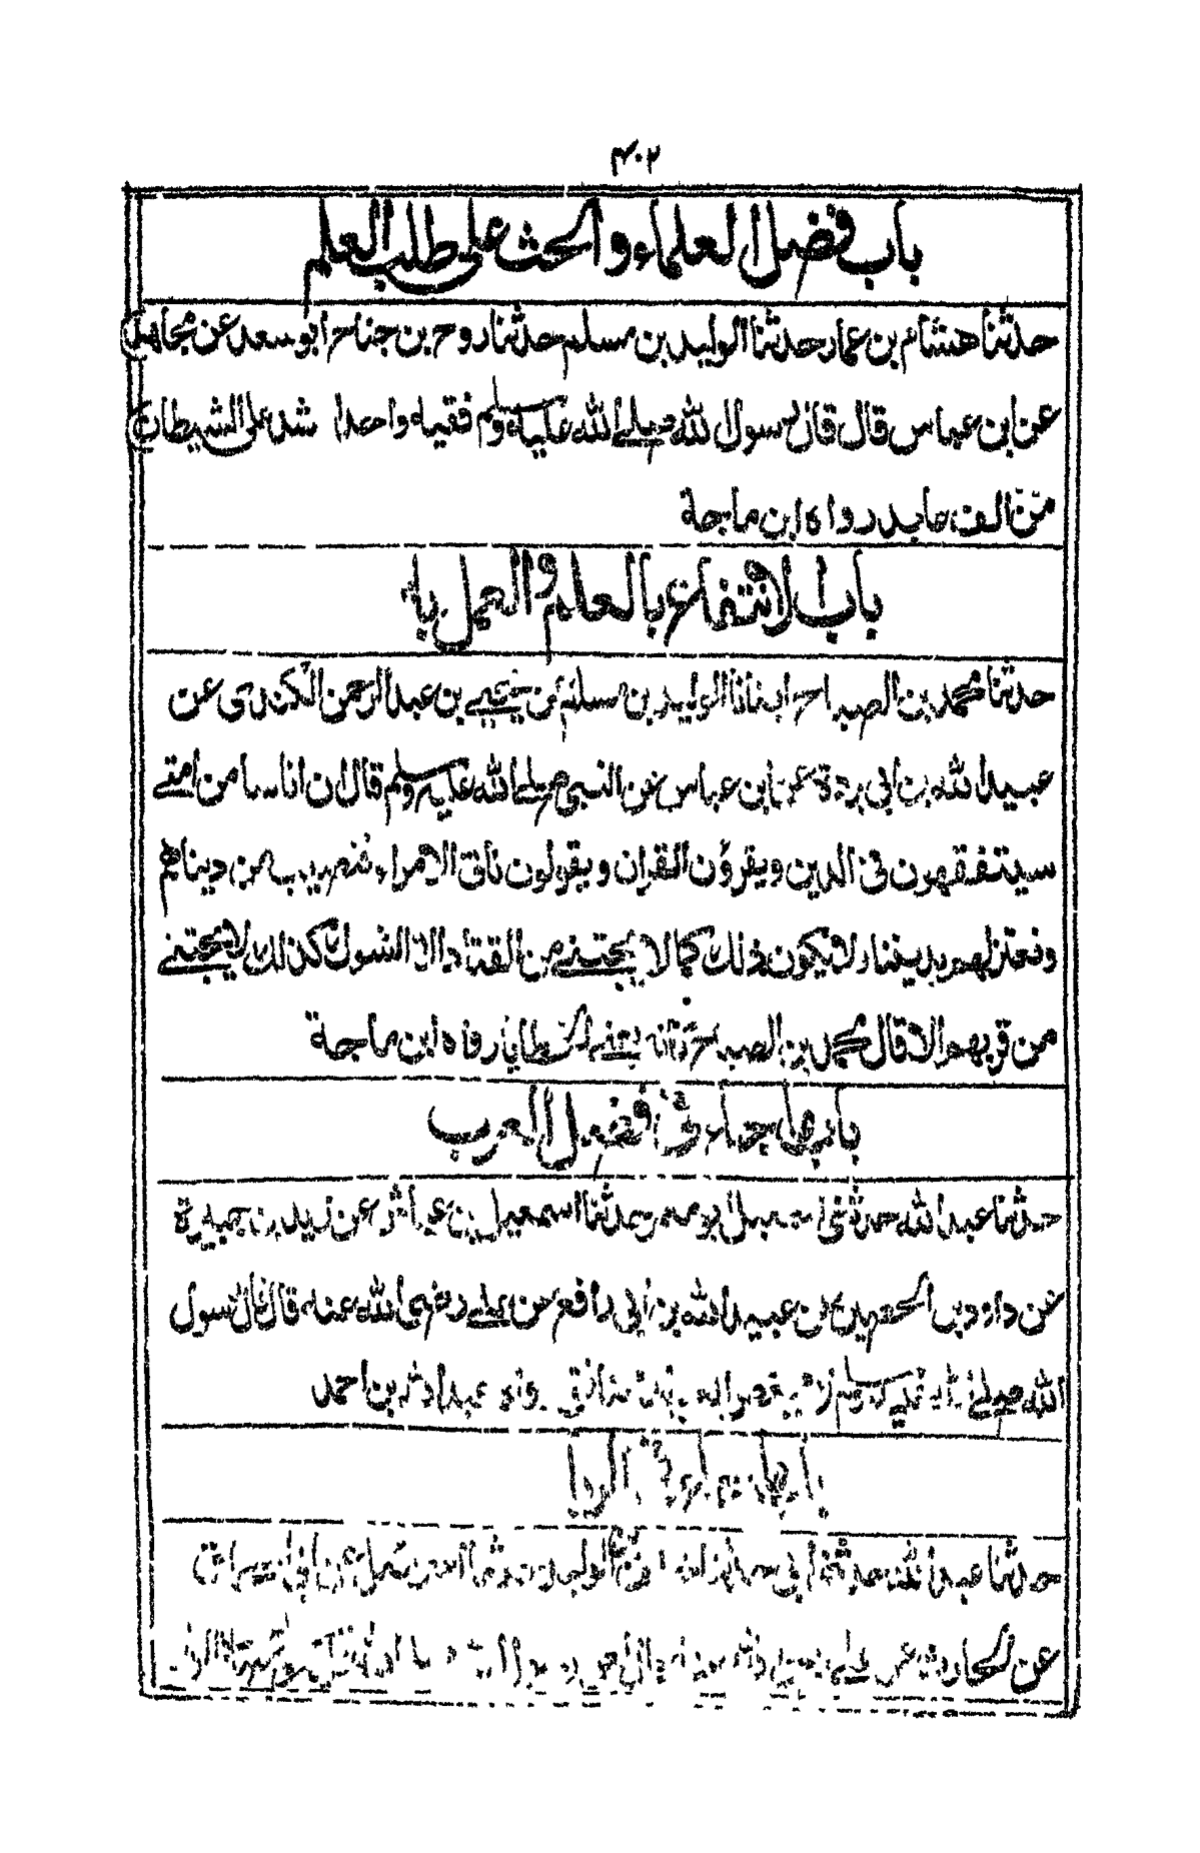 ۳۰۲
باب فضل العلماء والحث على طلب العلم
حدثنا هشام بن عمار حدثنا الوليد بن مسلم حدثنا روح بن جناح ابو سعد عن مجاهد
عن ابن عباس قال قال رسول الله صلى الله عليه وسلم فقيه واحد اشد على الشيطان
من الف عابد رواه ابن ماجة
باب الانتفاع بالعلم والعمل به
حدثنا محمد بن الصباح انبانا الوليد بن مسلم عن يحيى بن عبد الرحمن الكندى عن
عبيد الله بن ابى بردة عن ابن عباس عن النبى صلى الله عليه وسلم قال ان اناسا من امتى
سيتفقهون فى الدين ويقرؤن القران ويقولون ناتى الامراء فنصيب من دنياهم
ونعتزلهم بديننا ولا يكون ذلك كما لا يجتنى من القتاد الا الشوك كذلك لا يجتنى
من قربهم الا قال محمد بن الصباح كانه يعنى الخطايا رواه ابن ماجة
باب ما جاء فى فضل العرب
حدثنا عبد الله حدثنى اسمعيل ابو معمر حدثنا اسمعيل بن عياش عن زيد بن جبيرة
عن داود بن الحصين عن عبيد الله بن ابى رافع عن على رضى الله عنه قال قال رسول
الله صلى الله عليه وسلم لا يبغض العرب الا منافق رواه عبد الله بن احمد
باب ما جاء فى الربا
حدثنا عبد الله حدثنى ابى حدثنا خلف بن الوليد حدثنا اسرائيل عن ابى اسحاق
عن الحارث عن على رضى الله عنه قال لعن رسول الله